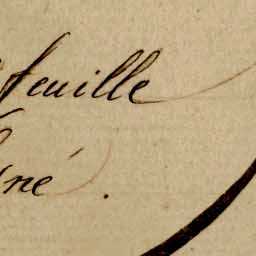 feuille
né.